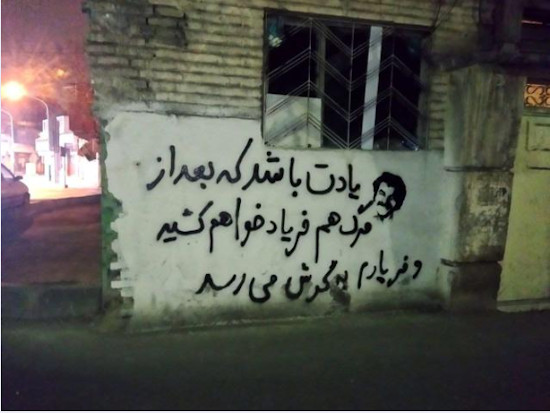 یادت باشد که بعد از
مرگ هم فریاد خواهم کشید
و فریادم به گوش می رسد